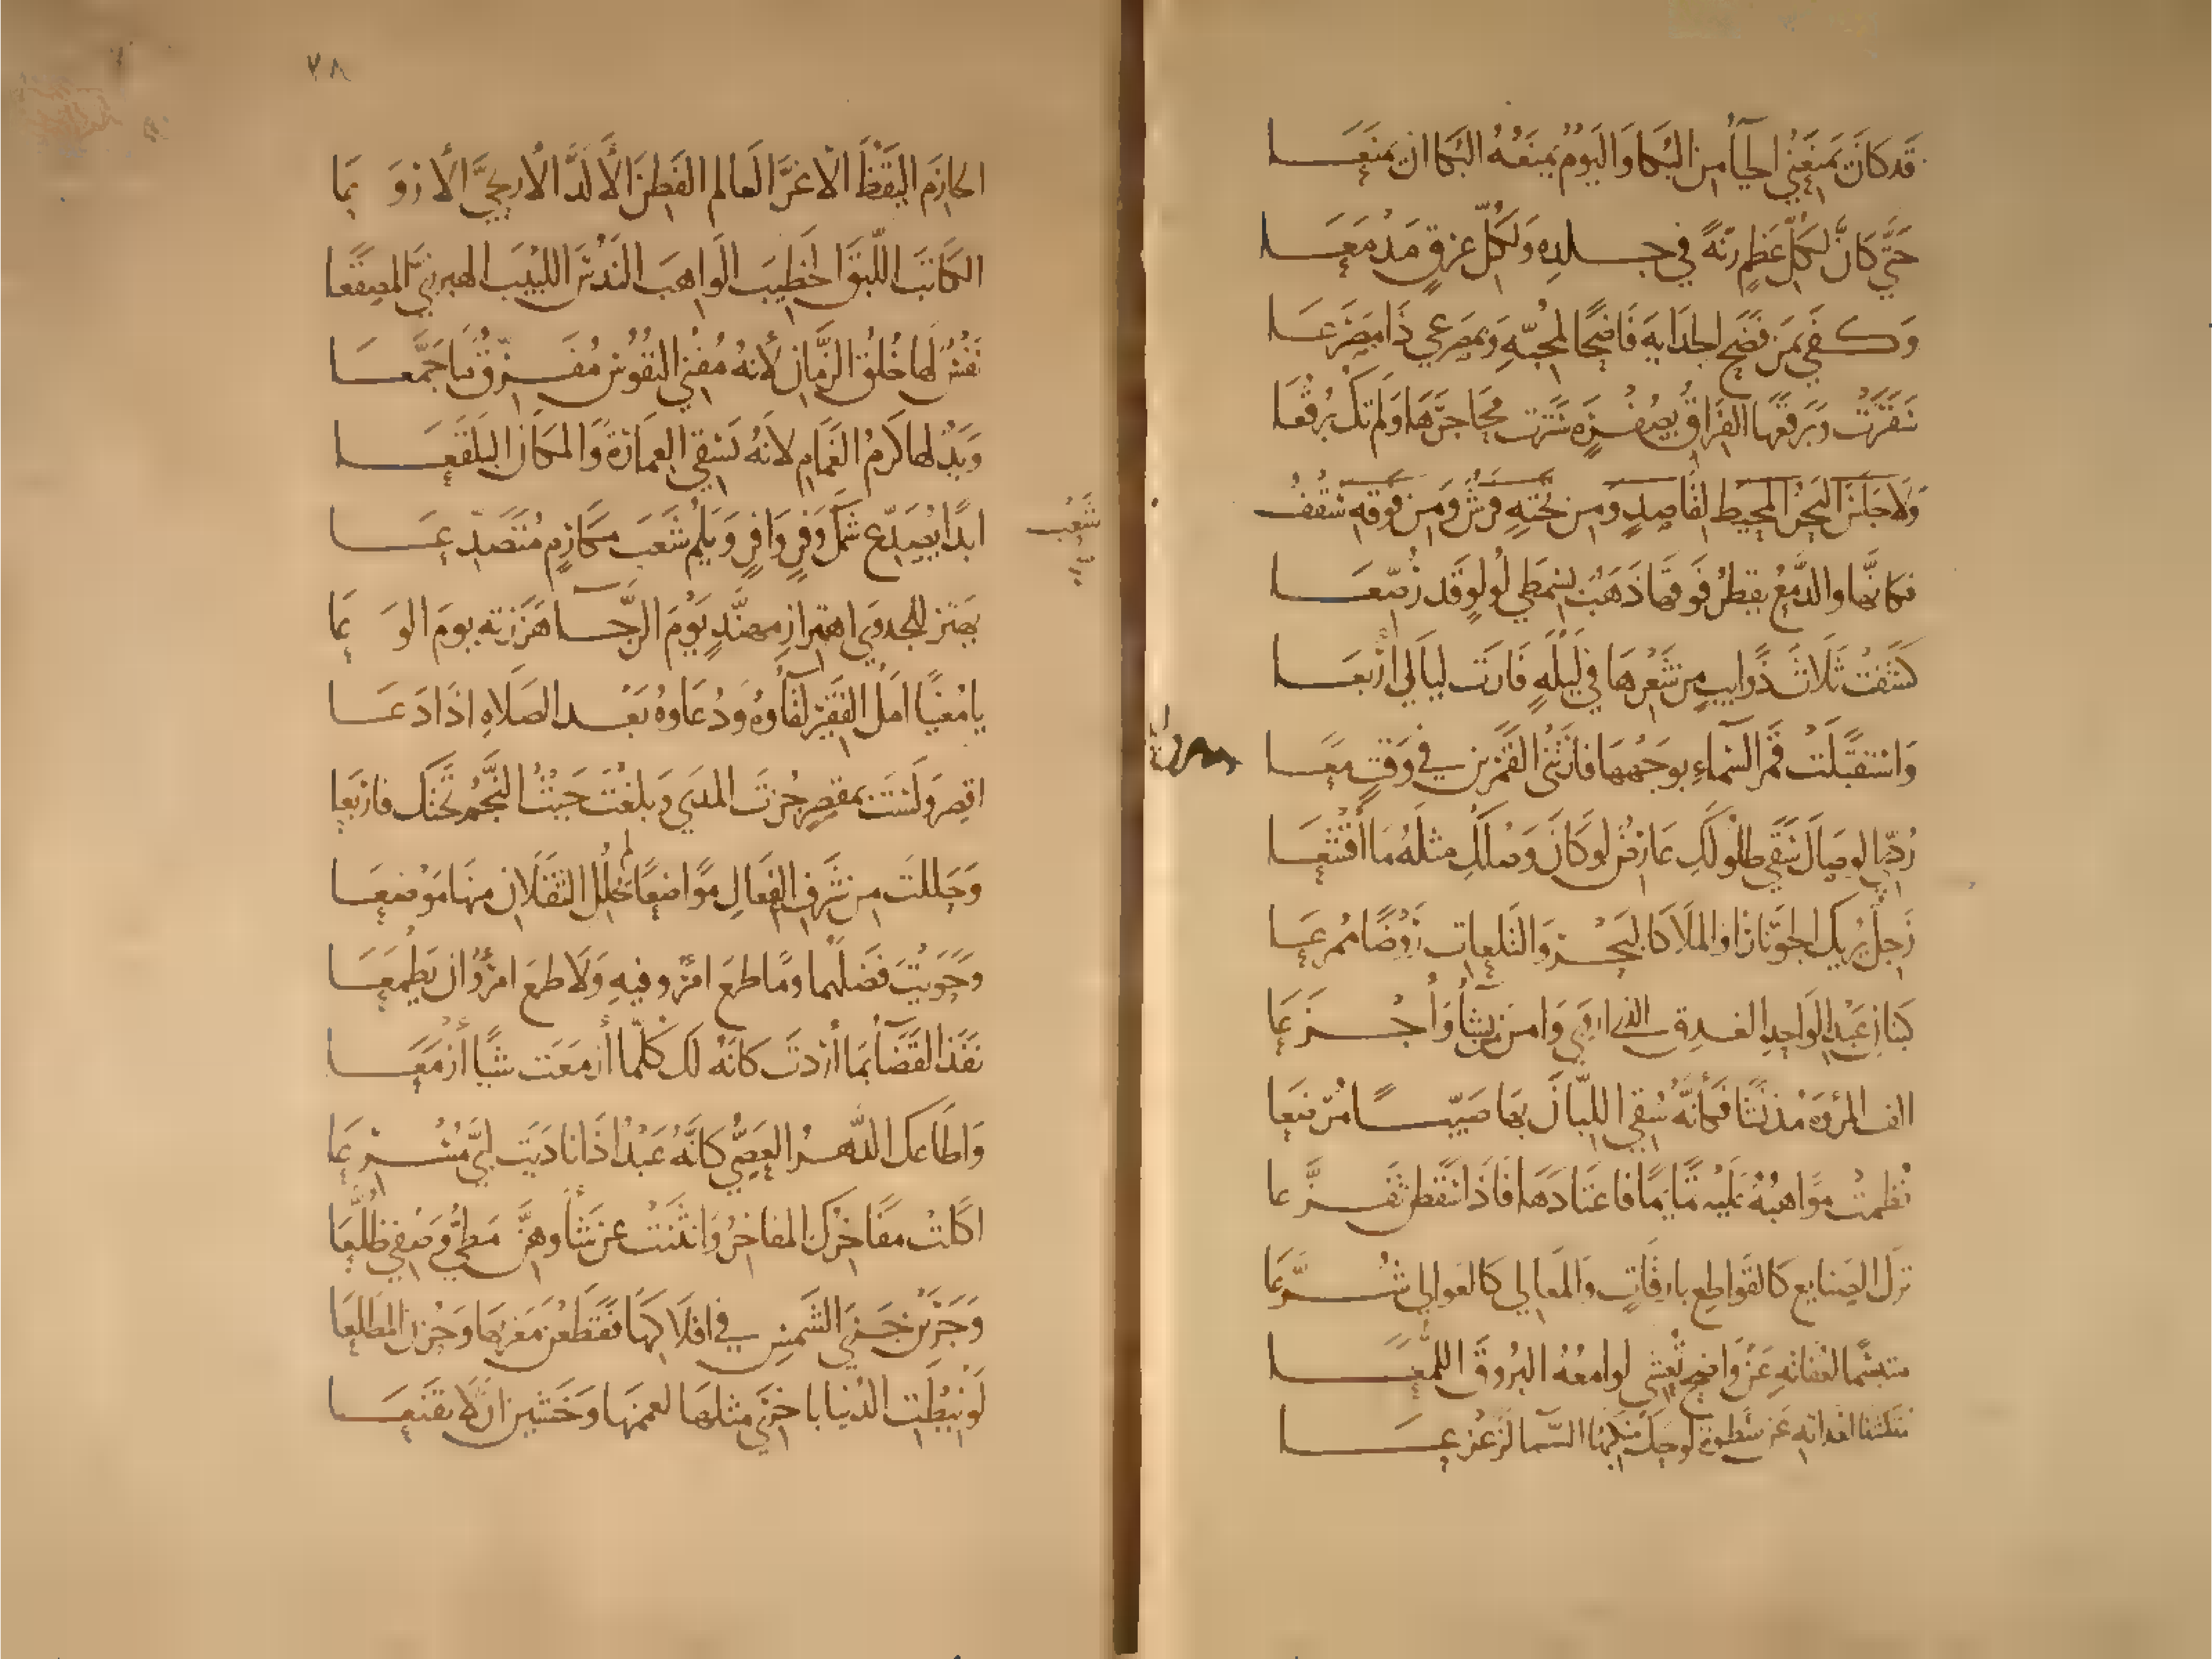 قَد كَانَ يَمنَعُنِي الحَيآءُ مِنَ البُكَا وَاليَومُ يَمنَعُهُ البُكَا ان يَمنَعَا
حَتَّى كَانَّ لِكُلِّ عَظمٍ رَنَّةً في جِلدِهِ وَلِكُلِّ عِرقٍ مَدمَعَا
وَكَفَى بمَن فَضَحَ الجَدَايَةَ فَاضِحًا لمُحِبِّهِ وَبمَصرَعِي ذَا مَصرَعَا
سَفَرَت وَبَرقَعَها الفِرَاقُ بِصُفرَةٍ سَتَرَت مَحَاجِرَهَا وَلم تَكُ بُرقُعَا
وَلَا جَلَسَ البَحرُ المُحيطُ لِقَاصِدٍ وَمِن تَحتِهِ فَرشٌ وَمِن فَوقِهِ سَقفُ
فكَانهَّا وَالدَّمعُ يَقطرُ فَوقَهَا ذَهَبٌ بِسِمطَي لُولُوٍ قَد رُصِّعَا
كَشَفَت ثَلاثَ ذَوايبٍ مِن شَعرِهَا فِي لَيلَةٍ فَارَت لَيَالي أَربَعَا
وَاستَقبَلَت قمَرَ السَّمآءِ بوَجهِهَا فَارَتنِي القَمَرَينِ فِي وَقتٍ مَعَا
رُدّي الوِصَالَ سَقَى طُلُولَكِ عَارِضٌ لو كَانَ وَصلُكِ مِثلَهُ مَا أَقشَعَا
زَجِلٌ يُرِيكِ الجَوَّ نَارًا وَالمَلَا كَالبَحرِ وَالتَلعَاتِ رَوضًا مُمرِعَا
كبَنَانِ عَبدِ الوَاحِدِ الغَدِقِ الذي اروَي وَامَنَ مَن يَشَأُ وَأَجزَعَا
الفَ المُرُوَّةَ مُذ نَشَا فَكَأَنَّهُ سُقِيَ اللِّبَانَ بهَا صَبِيًّا مُرضَعَا
نُظِمَت مَوَاهِبُهُ عَلَيهِ تَمَايمًا فَاعتَادَهَا فَاذَا سَقَطنَ تَفَزَّعَا
تَرَكَ الصَنَايعَ كَالقَوَاطِعِ بارِقَاتٍ وَالمَعَالِي كَالعَوَالِي شُرَّعَا
متبَسّمًا لعُفَاتِهِ عَن وَاضِحٍ تُعشِي لَوامِعُهُ البُرُوقَ اللُّمَّعَا
متكَشّفًا لعُداتِهِ عَن سَطوَةٍ لو حَكَّ مَنكِبُهَا السَّمَا لَزَعزَعَا
٧٨
الحَازِمَ اليَقِظَ الأَغَرَّ العَالِمَ الفَطِنَ الأَلَدَّ الأَريَحيَّ الأَروَعَا
الكَاتِبَ اللَّبِقَ الخَطِيبَ الوَاهِبَ النَّدُسَ اللَبِيبَ الهبرزِيَّ المِصقَعَا
نَفسٌ لَهَا خُلُقُ الزَّمَانِ لأَنهُ مُفنِي النفُوسِ مُفَرِّقٌ مَا جَمَّعَا
وَيَدٌ لهَا كَرَمُ الغَمَامِ لانَهُ يَسقِي العِمَارَةَ وَالمكَانَ البَلقَعَا
ابَدًا يُصَدِّعُ شَملَ وَفرٍ وَافِرٍ وَيَلُمُّ شَعبَ مَكَارِمٍ مُتَصَدِّعَا
شَعْب
يَهتَزُّ للجَدوَى اهتِزازَ مهَنَّدٍ يَومَ الرَّجَآ هَزَزتَه يَومَ الوَعَا
يا مُغنيًا امَلَ الفَقِيرِ لقَاوُهُ وَدُعَاوُهُ بَعدَ الصَلَاةِ اذَا دَعَا
اقصِر وَلَستَ بمقصِرٍ جُزتَ المَدَي وَبلغتَ حَيثُ النَّجمُ تحتَكَ فاربَعَا
وَحَلَلتَ مِن شَرَفِ الفَعَالِ مَوَاضِعًا لَم يَحلُلِ الثَقَلَانِ مِنهَا مَوضِعَا
وَحَوَيتَ فَضلَهُمَا وَمَا طَمِعَ امرُؤ فيهِ وَلَا طمِعَ امرُؤ ان يَطمَعَا
نَفَذَ القَضَآ بمَا أَرَدتَ كَانَهُ لَكَ كلَّمَا أَزمَعتَ شيًا أَزمَعَا
وَاطَاعَكَ الدَّهرُ العَصِيُّ كَانَّهُ عَبدٌ اذَا نَادَيتَ لَبَّى مُسرِعَا
اكَلَت مَفَاخِرُكَ المفَاخِرَ وَانثَنَت عَن شَأوِهِنَّ مَطِيُّ وَصفِي ظُلَّعَا
وَجَرَينَ جَريَ الشَّمسِ فِي افلَاكِهَا فَقَطَعنَ مَغرِبَهَا وَجُزنَ المَطلَعَا
لَو نِيطَتِ الدُنيَا باخرَي مِثلِهَا لعَمَمنَهَا وَخَشِينَ ان لَا تَقنَعَا